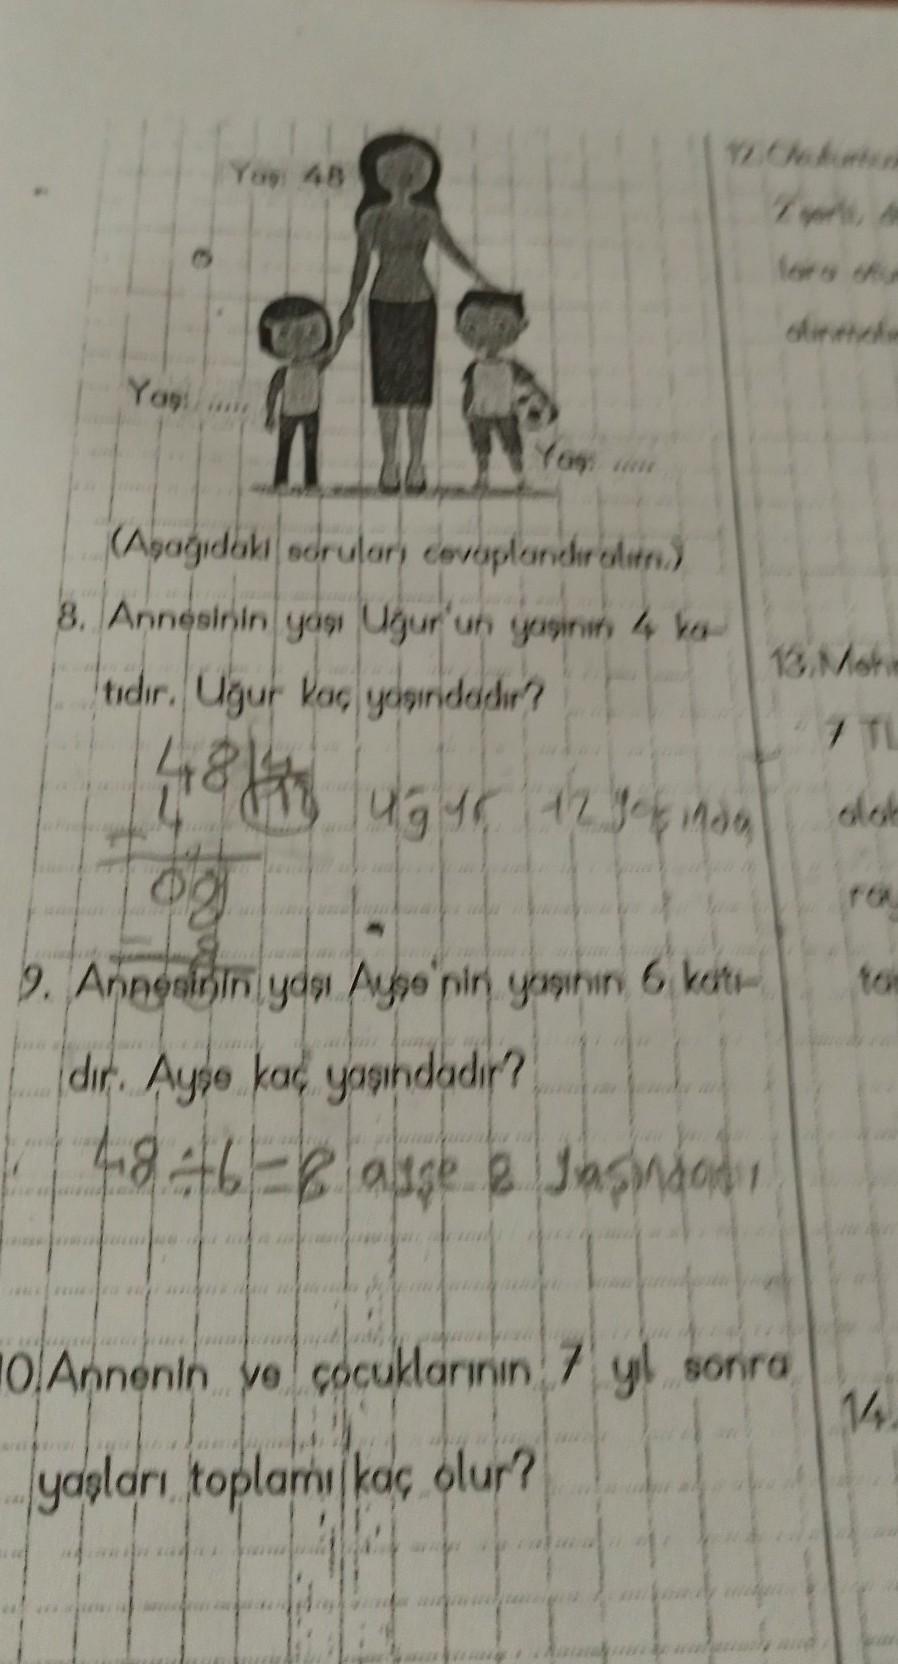 Yaş: 48
Yaş: .....
Yaş: .....
(Aşağıdaki soruları cevaplandıralım.)
8. Annesinin yaşı Uğur'un yaşının 4 ka-
tıdır. Uğur kaç yaşındadır?
48 4
- 4
08
- 8
Uğur 12 yaşında
9. Annesinin yaşı Ayşe'nin yaşının 6 katı-
dır. Ayşe kaç yaşındadır?
48÷6=8 ayşe 8 yaşındadı
10. Annenin ve çocuklarının 7 yıl sonra
yaşları toplamı kaç olur?
12.
13.
7 TL
14.